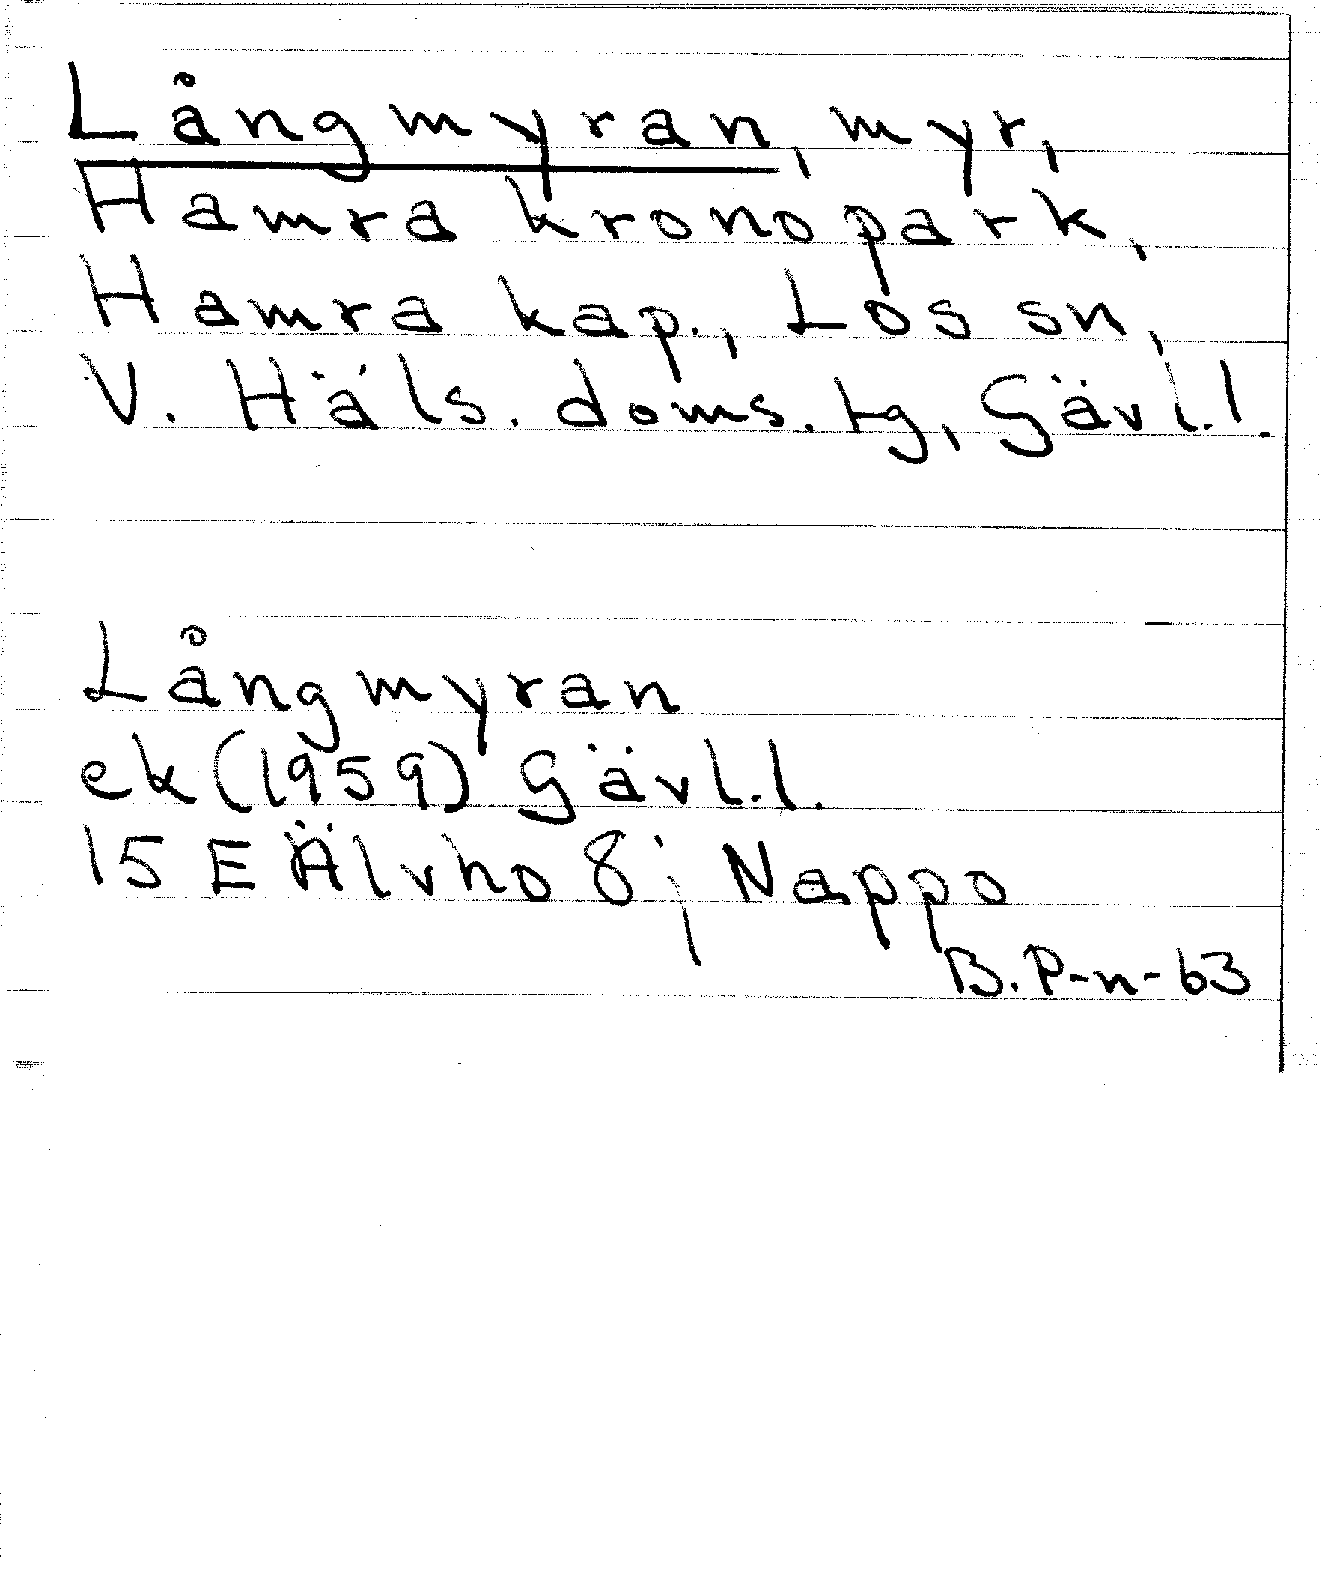 Långmyran, myr,
Hamra kronopark,
Hamra kap., Los sn,
V. Häls. doms. tg, Gävl.l.
Långmyran
ek (1959) Gävl.l.
15 E Älvho 8 ; Nappo
B. P-n-63